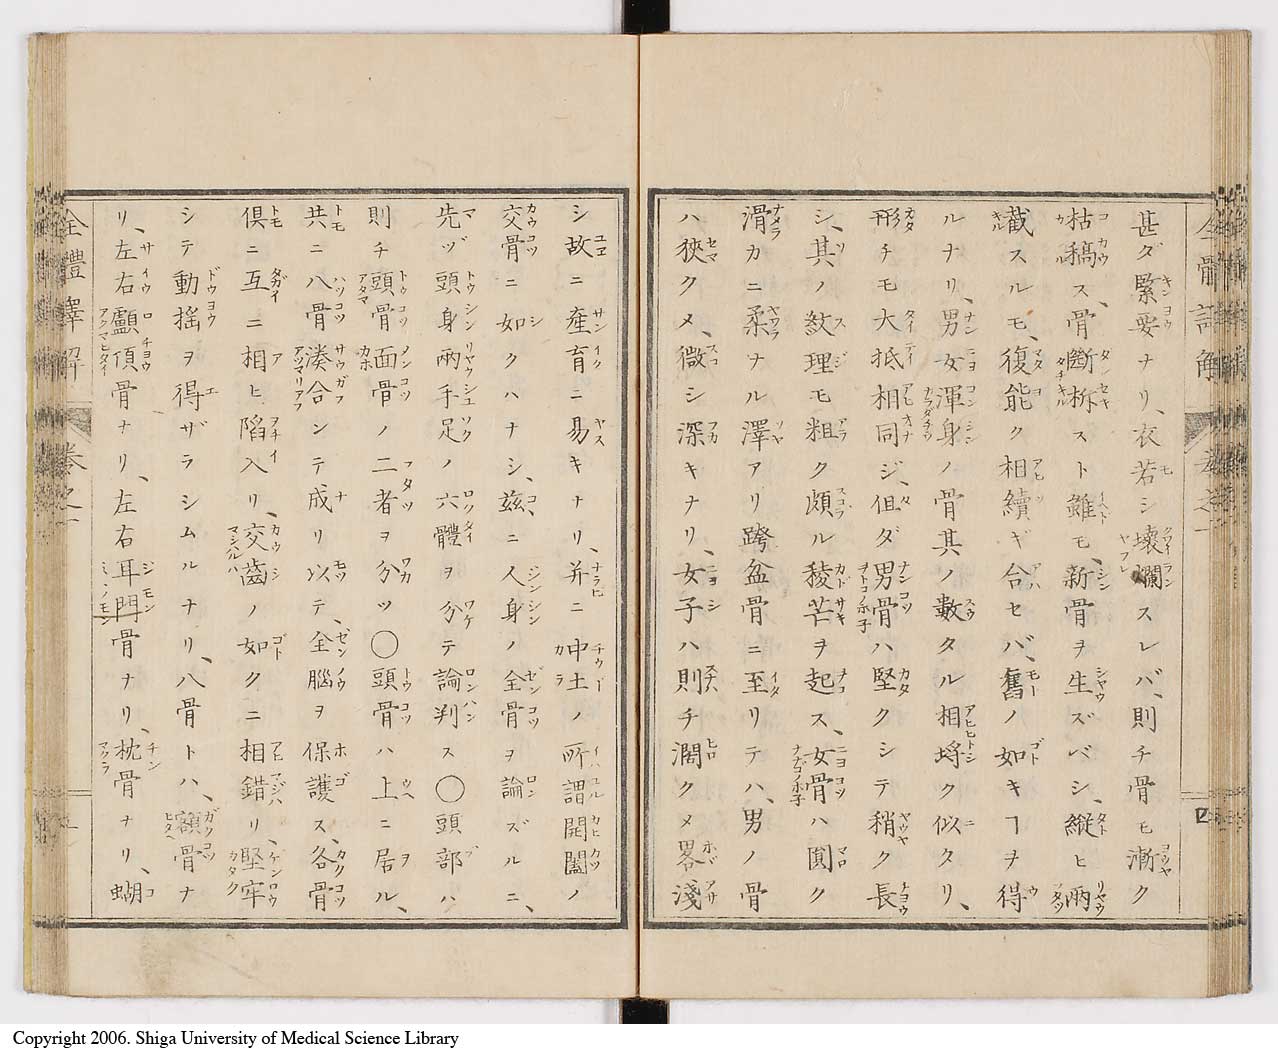 甚ダ緊要ナリ、衣若シ壊爛スレバ、則チ骨モ漸ク
枯稿ス、骨斷柝スト雖モ、新骨ヲ生ズベシ、縦ヒ兩
截スルモ、復能ク相續ギ合セバ、舊ノ如キヿヲ得
ルナリ、男女渾身ノ骨其ノ數タル相埒ク似タリ、
形チモ大抵相同ジ、伹ダ男骨ハ堅クシテ稍ク長
シ、其ノ紋理モ粗ク頗ル稜芒ヲ起ス、女骨ハ圓ク
滑カニ柔ヲナル澤アリ跨盆骨ニ至リテハ、男ノ骨
ハ狹クメ、微シ深キナリ、女子ハ則チ濶クメ畧淺
シ故ニ產育ニ易キナリ、并ニ中土ノ所謂開闔ノ
交骨ニ如クハナシ、茲ニ人身ノ全骨ヲ論ズルニ、
先ヅ頭身兩手足ノ六體ヲ分テ論判ス〇頭部ハ
則チ頭骨面骨ノ二者ヲ分ツ〇頭骨ハ上ニ居ル、
共ニ八骨湊合シテ成リ以テ、全腦ヲ保護ス、各骨
倶ニ互ニ相ヒ陷入リ、交齒ノ如クニ相錯リ、堅牢
シテ動揺ヲ得ザラシムルナリ、八骨トハ、額骨ナ
リ、左右顱頂骨ナリ、左右耳門骨ナリ、枕骨ナリ、蝴
全體譯解 卷之一
Copyright 2006. Shiga University of Medical Science Library